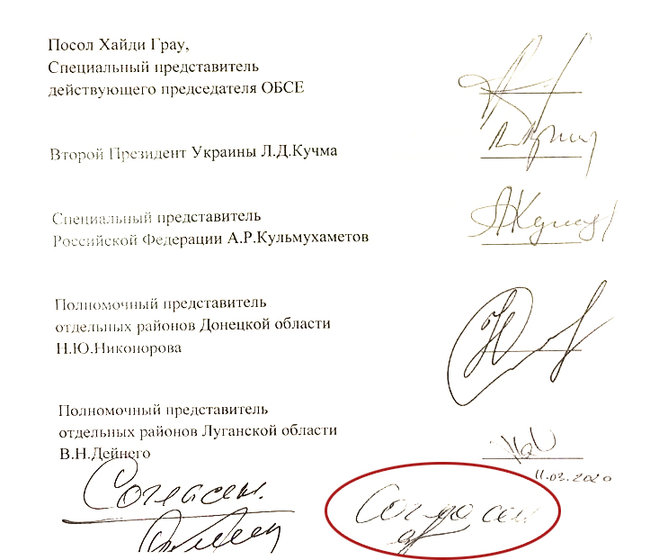 Посол Хайди Грау,
Специальный представитель
действующего председателя ОБСЕ
Второй Президент Украины Л.Д.Кучма
Специальный представитель
Российской Федерации А.Р.Кульмухаметов
Полномочный представитель
отдельных районов Донецкой области
Н.Ю.Никонорова
Полномочный представитель
отдельных районов Луганской области
В.Н.Дейнего
11.03.2020
Согласен.
Согласен